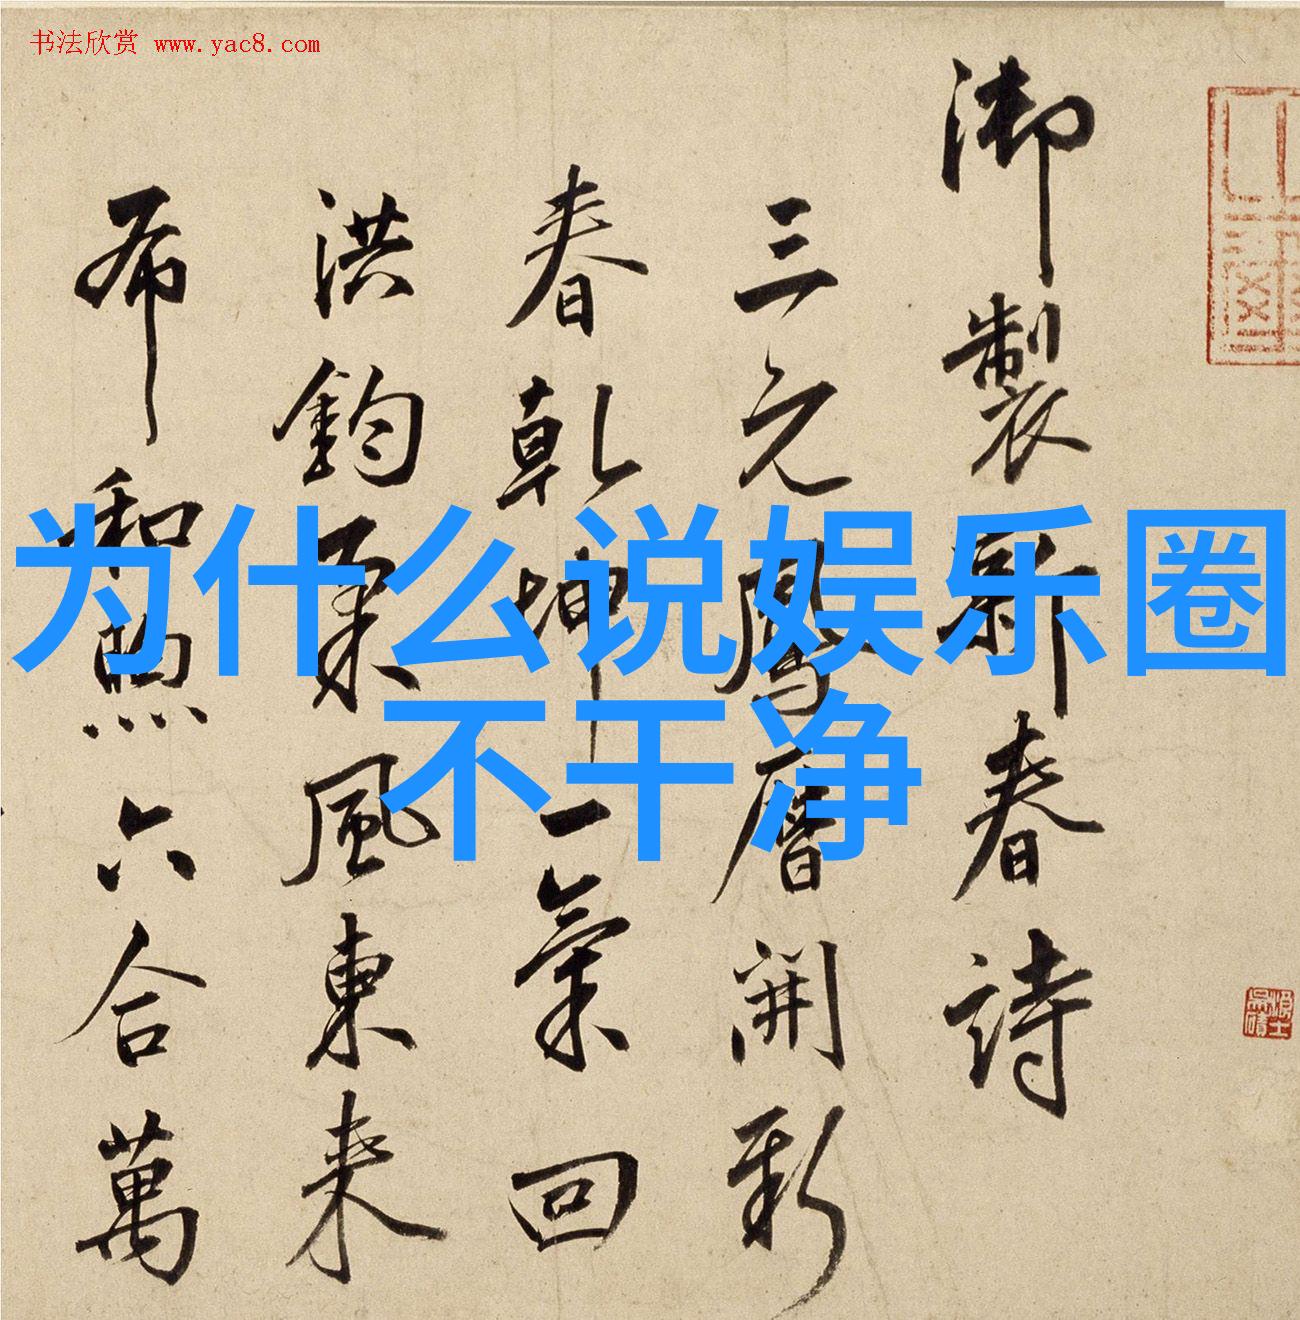 书法欣赏 www.yac8.com
为什么说娱乐圈
不干净
御製新春詩
三元鳳曆開新
春乾坤一氣回
洪鈞柔風東来
布和煦六合萬